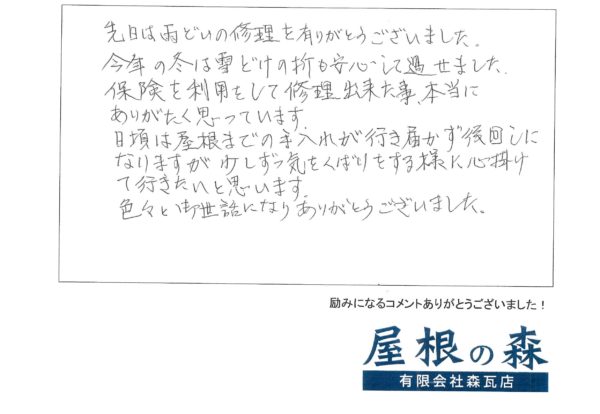 先日は雨どいの修理を有りがとうございました。
今年の冬は雪どけの折も安心して過せました。
保険を利用をして修理出来た事、本当に
ありがたく思っています。
日頃は屋根までの手入れが行き届かず後回しに
なりますが少しずつ気をくばりをする様に心掛け
て行きたいと思います。
色々と御世話になりありがとうございました。
励みになるコメントありがとうございました！
屋根の森
有限会社森瓦店